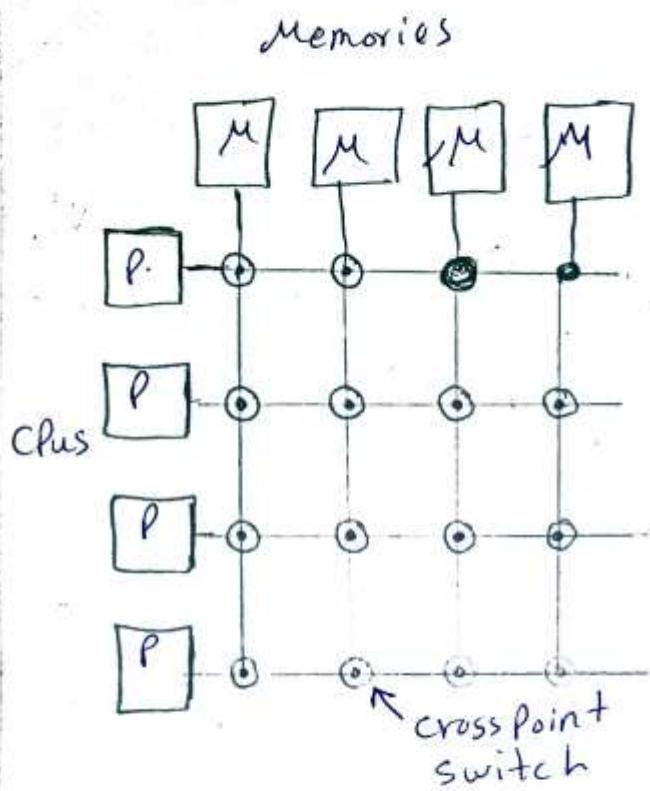 Memories
M M M M
P.
P
CPus
P
P
cross Point
switch